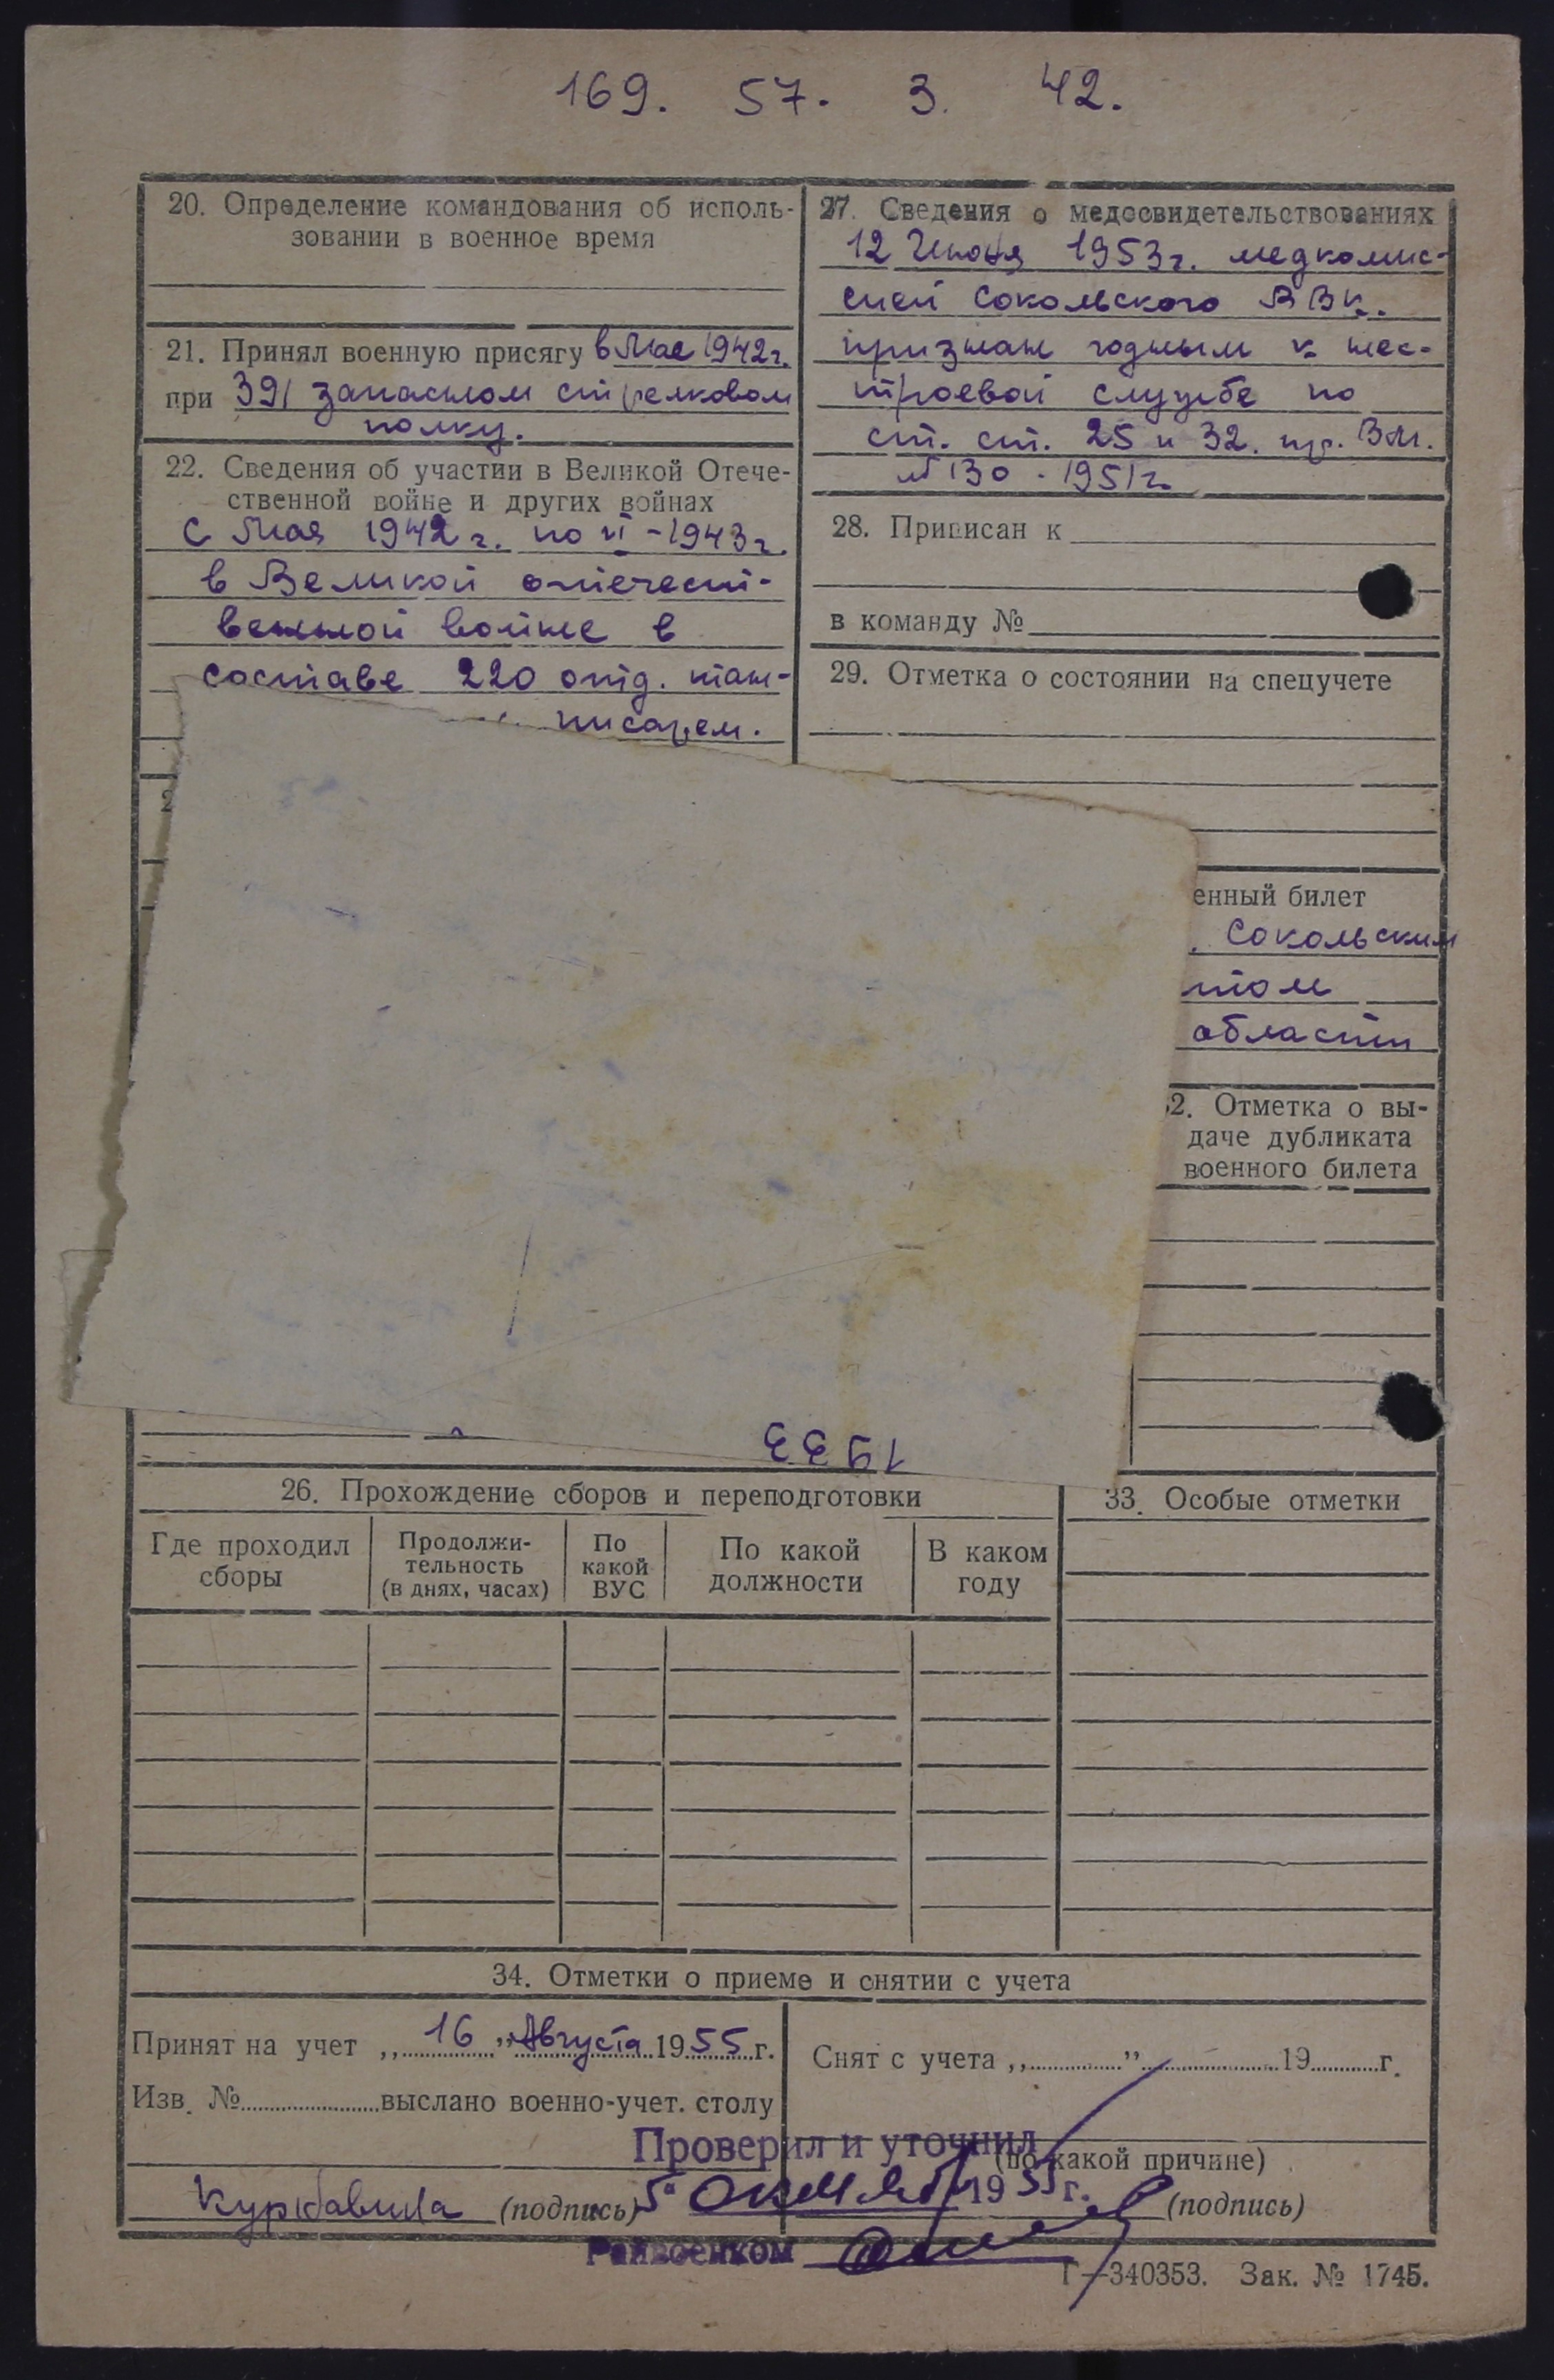 169. 57. 3. 42.
20. Определение командования об исполь-
зовании в военное время
21. Принял военную присягу в Мае 1942г.
при 391 запасном стрелковом
полку.
22. Сведения об участии в Великой Отече-
ственной войне и других войнах
С Мая 1942 г. по VI-1943г.
в Великой отечест-
венной войне в
составе 220 отд. тан-
писарем.
27. Сведения о медосвидетельствованиях
12 Июня 1953г. медкомис-
сией Сокольского РВК.
признан годным к нес-
троевой службе по
ст. ст. 25 и 32. пр. ВМ.
№ 130 - 1951г.
28. Приписан к
в команду №
29. Отметка о состоянии на спецучете
енный билет
. Сокольским
том
области
2. Отметка о вы-
даче дубликата
военного билета
1933
26. Прохождение сборов и переподготовки
Где проходил
сборы
Продолжи-
тельность
(в днях, часах)
По
какой
ВУС
По какой
должности
В каком
году
33. Особые отметки
34. Отметки о приеме и снятии с учета
Принят на учет „16" Августа 1955 г.
Изв. № выслано военно-учет. столу
(подпись)
Снят с учета „ " 19 г.
(по какой причине)
(подпись)
Проверил и уточнил
5" Октября 1955 г.
Райвоенком
Г—340353. Зак. № 1745.